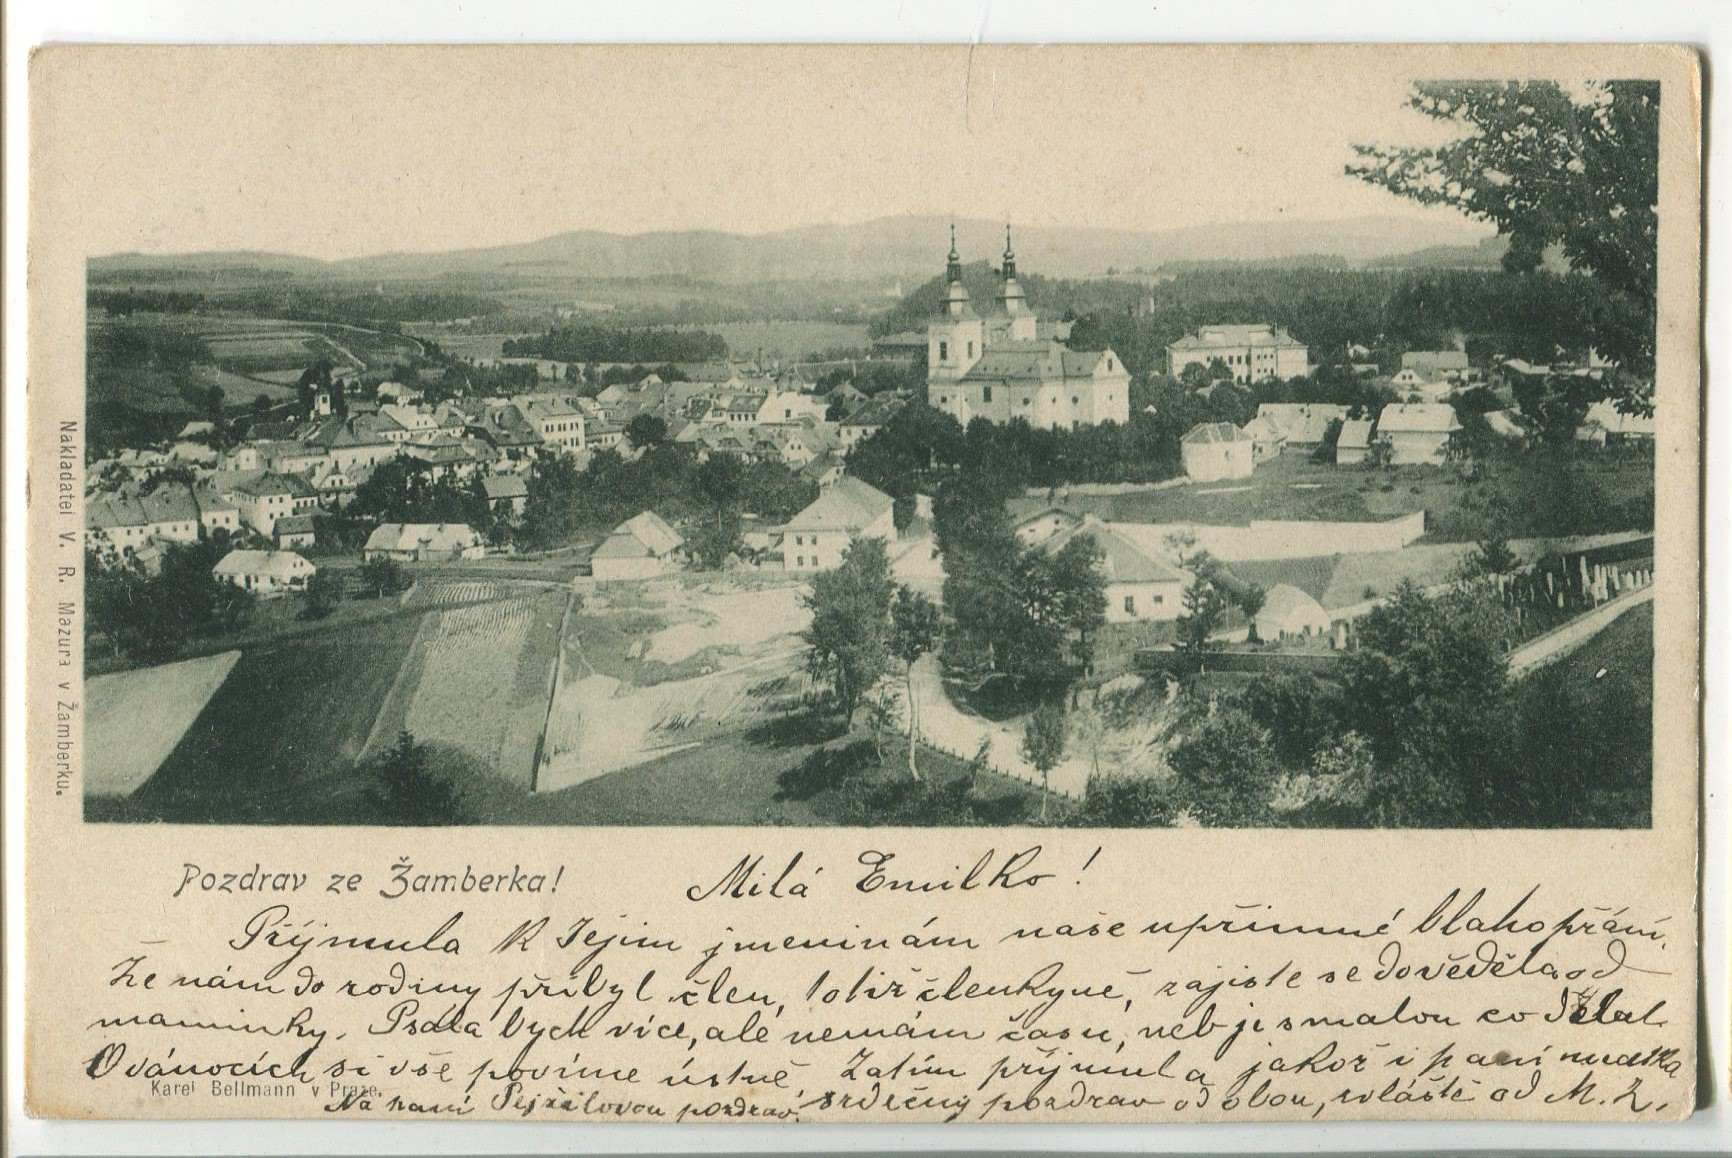 Nakladatel V. R. Mazura v Žamberku.
Pozdrav ze Žamberka!
Milá Emilko!
Přýjmula k Jejim jmeninám naše upřimné blahopřání,
že nám do rodiny přibyl člen, totiž členkyně, zajiste se dověděla od
maminky. Psala bych více, ale nemám času, neb ji s malou co dělat.
O vánocích si vše povíme ústně. Zatím přýjmula jakož i paní matka
Karel Bellmann v Praze.
srdečný pozdrav od obou, zvláště od M. Ž.
Na paní pozdrav.